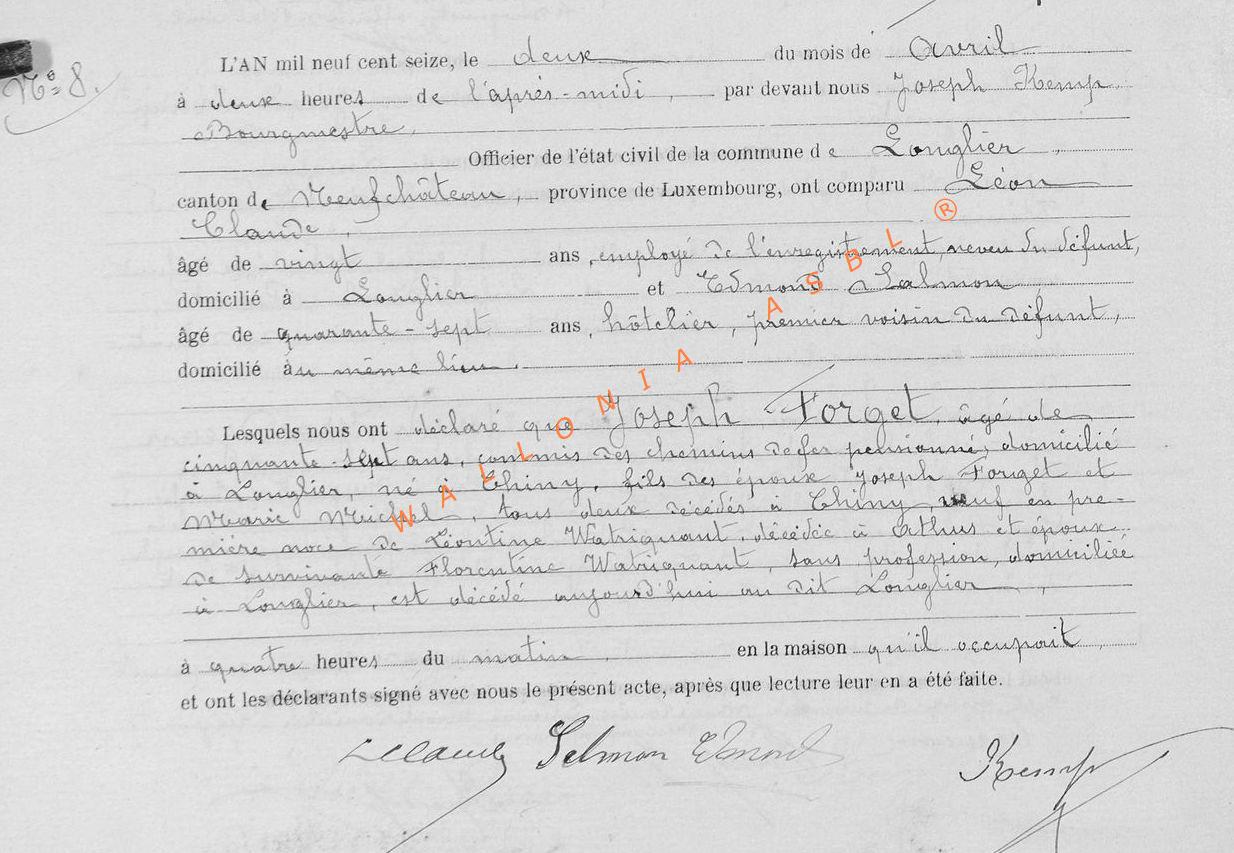 L'AN mil neuf cent seize, le deux du mois de Avril
N° 8.
à deux heures de l'après-midi, par devant nous Joseph Kemp
Bourgmestre,
Officier de l'état civil de la commune de Longlier,
canton de Neufchâteau, province de Luxembourg, ont comparu Léon
Claude,
âgé de vingt ans, employé de l'enregistrement, neveu du défunt,
domicilié à Longlier et Edmond Salmon,
âgé de quarante-sept ans, hôtelier, premier voisin du défunt,
domicilié au même lieu.
Lesquels nous ont déclaré que Joseph Forget, âgé de
cinquante-sept ans, commis des chemins de fer pensionné, domicilié
à Longlier, né à Chiny, fils des époux Joseph Forget et
Marie Michel, tous deux décédés à Chiny, veuf en pre-
mière noce de Léontine Watriquant, décédée à Athus et époux
de survivante Florentine Watriquant, sans profession, domiciliée
à Longlier, est décédé aujourd'hui au dit Longlier,
à quatre heures du matin, en la maison qu'il occupait
et ont les déclarants signé avec nous le présent acte, après que lecture leur en a été faite.
LClaude Salmon Edmond Kemp
WALLONIA ASBL ®